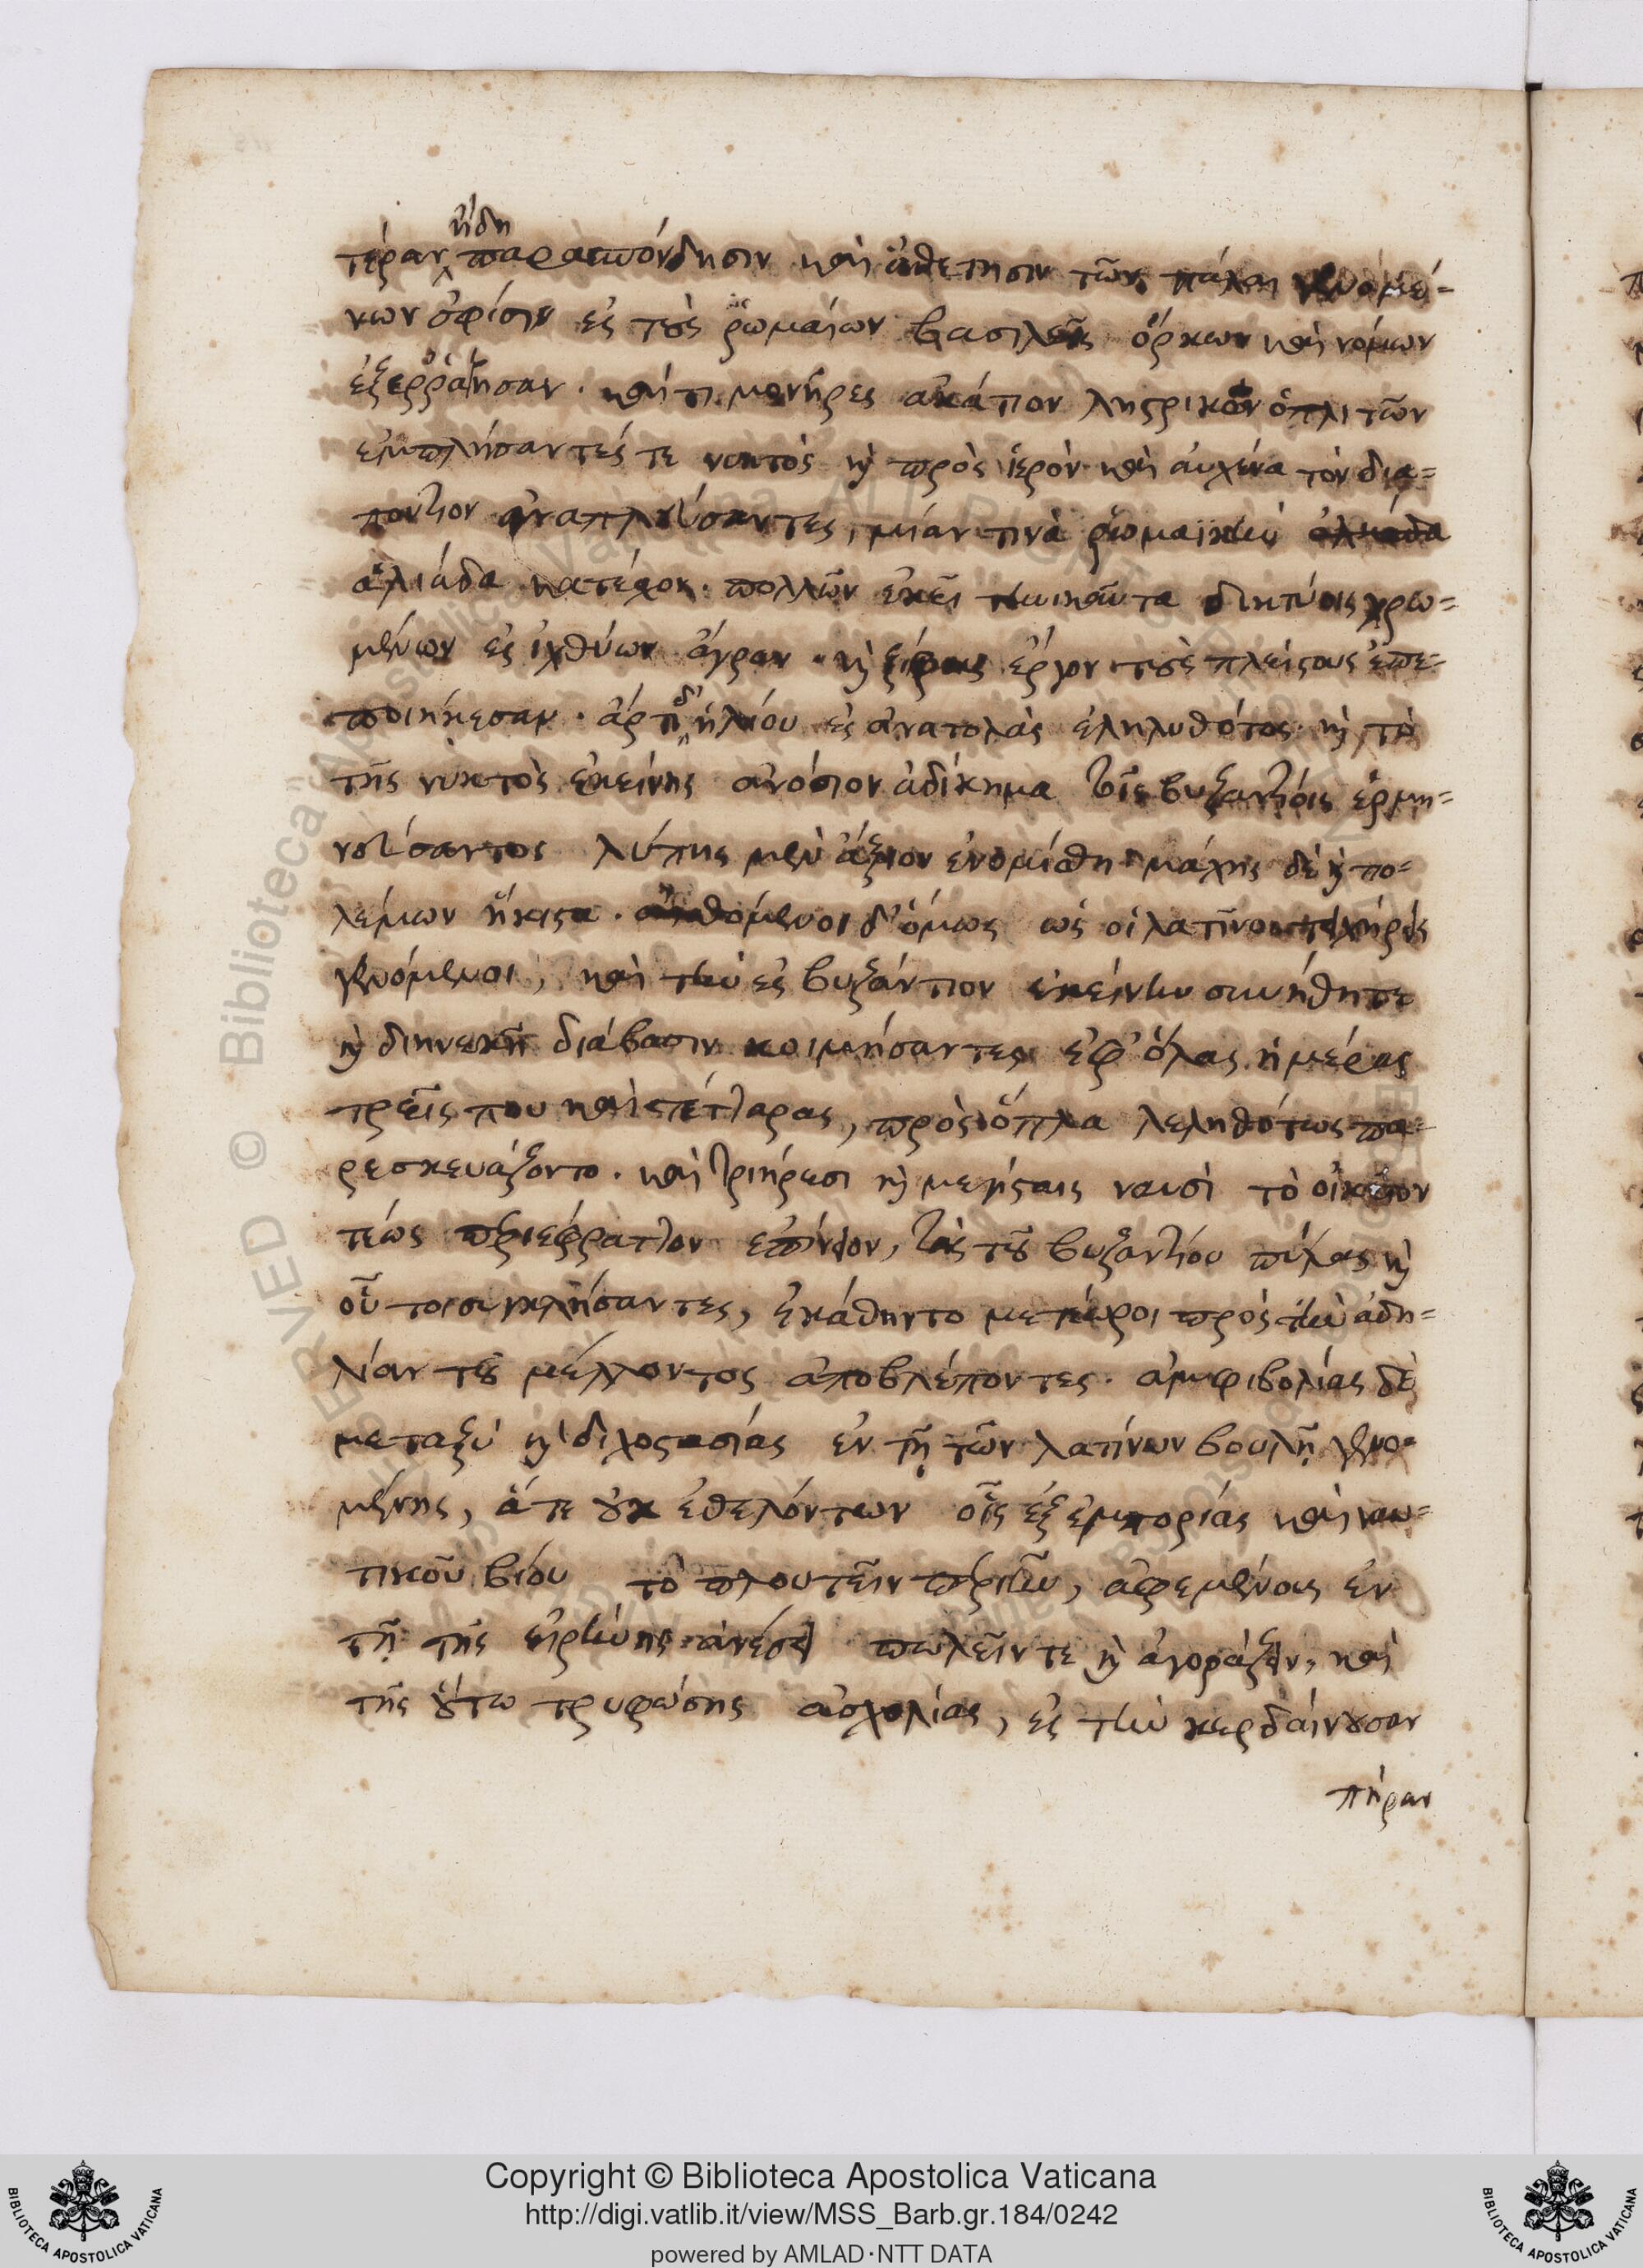 τέραν ἤδη παρασπόνδησιν καὶ ἀθέτησιν τῶν πάλαι γενομέ=
νων σφίσιν ἐς τοὺς ῥωμαίων βασιλεῖς ὅρκων καὶ νόμων
ἐξερράγησαν. καί τι μονῆρες ἀκάτιον λῃστρικὸν ὁπλιτῶν
ἐμπλήσαντές τε νυκτὸς καὶ πρὸς ἱερὸν καὶ αὐχένα τὸν δια=
πόντιον ἀναπλεύσαντες, μίαν τινὰ ῥωμαϊκὴν
ἁλιάδα κατέσχον. πολλῶν ἐκεῖ τηνικαῦτα δικτύοις χρω=
μένων ἐς ἰχθύων ἄγραν. καὶ ξίφους ἔργον τοὺς πλείστους ἐπε=
ποιήκεσαν. ἄρτι δ' ἡλίου ἐς ἀνατολὰς ἐληλυθότος καὶ τὸ
τῆς νυκτὸς ἐκείνης ἀνόσιον ἀδίκημα τοῖς βυζαντίοις ἑρμη=
νεύσαντος λύπης μὲν ἄξιον ἐνομίσθη μάχης δὲ καὶ πο=
λέμων ἥκιστα. αἰσθόμενοι δ' ὅμως ὡς οἱ λατῖνοι τειχήρεις
γενόμενοι, καὶ τὴν ἐς βυζάντιον ἐκείνην συνήθη τε
καὶ διηνεκῆ διάβασιν κοιμήσαντες ἐφ' ὅλας ἡμέρας
τρεῖς που καὶ τέτταρας, πρὸς ὅπλα λεληθότως πα=
ρεσκευάζοντο. καὶ τριήρεσι καὶ μεγίσταις ναυσὶ τὸ οἰκεῖον
τέως περιεφράττον ἐπίνειον, τὰς τοῦ βυζαντίου πύλας καὶ
οὗτοι συγκλείσαντες, ἐκάθηντο μετέωροι πρὸς τὴν ἀδη=
λίαν τοῦ μέλλοντος ἀποβλέποντες. ἀμφιβολίας δὲ
μεταξὺ καὶ διχοστασίας ἐν τῇ τῶν λατίνων βουλῇ γενο=
μένης, ἅτε οὐκ ἐθελόντων οἷς ἐξ ἐμπορίας καὶ ναυ=
τικοῦ βίου τὸ πλουτεῖν περιῆν, ἀφεμένοις ἐν
τῇ τῆς εἰρήνης ἀνέσει πωλεῖν τε καὶ ἀγοράζειν, καὶ
τῆς οὕτω τρυφώσης ἀσχολίας, ἐς τὴν κερδαίνουσαν
πήραν
Copyright © Biblioteca Apostolica Vaticana
http://digi.vatlib.it/view/MSS_Barb.gr.184/0242
powered by AMLAD·NTT DATA
BIBLIOTECA APOSTOLICA VATICANA
BIBLIOTECA APOSTOLICA VATICANA